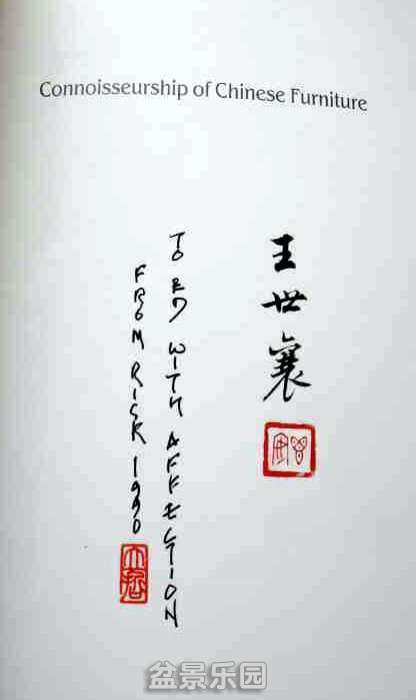 Connoisseurship of Chinese Furniture
王世襄
TO ED WITH AFFECTION
FROM RICK 1990
盆景乐园